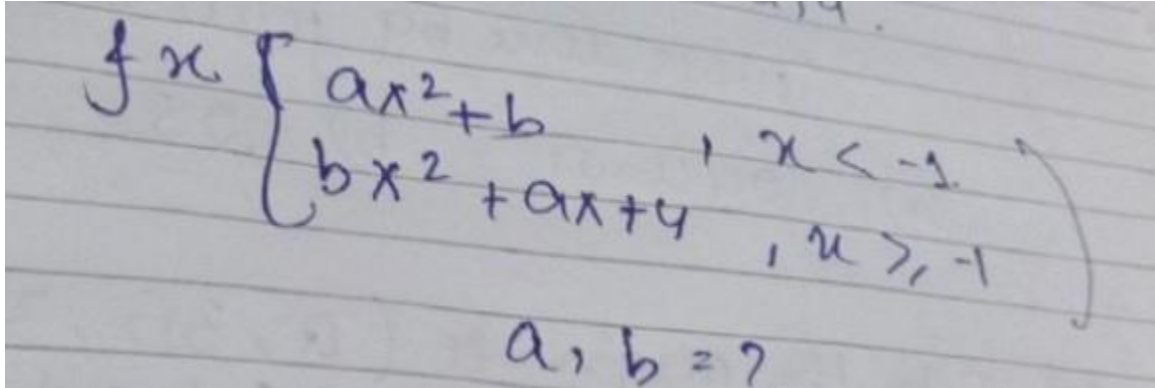 f x { ax² + b , x < -1
bx² + ax + 4 , x ≥ -1
a, b = ?